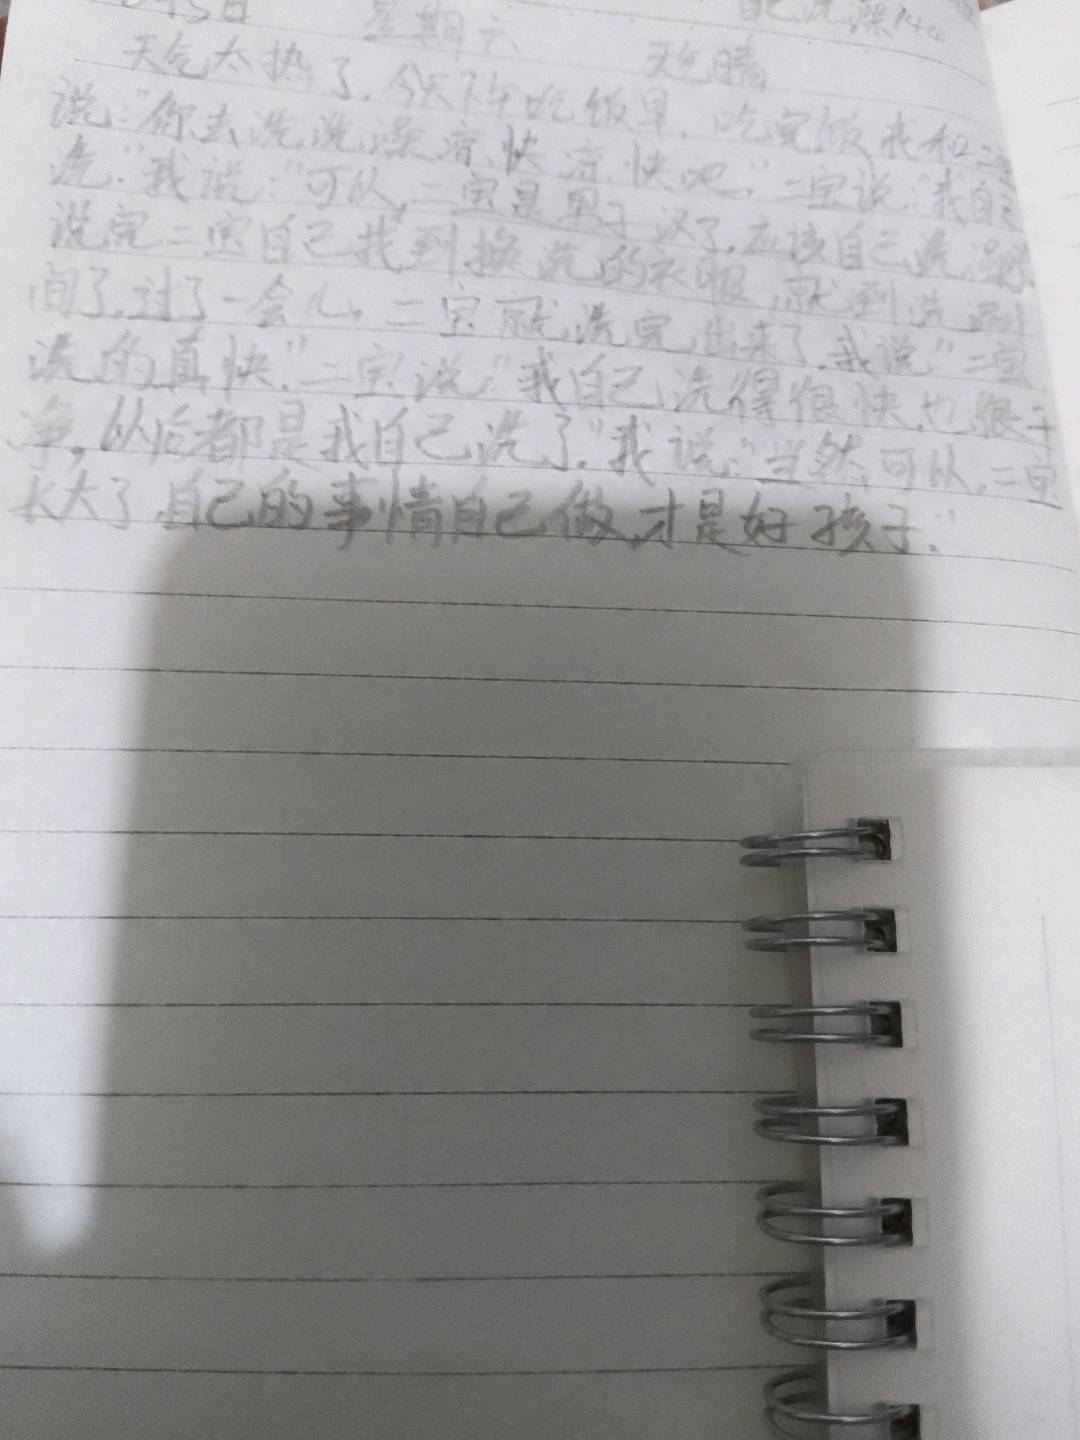 5日 星期六 自己洗澡
天气晴
天气太热了,今天下午吃饭早,吃完饭我和二宝
说:"你去洗洗澡凉快凉快吧,"二宝说:"我自己
洗."我说:"可以,二宝是男子汉了,应该自己洗澡."
说完二宝自己找到换洗的衣服,就到洗澡
间了,过了一会儿,二宝就洗完出来了,我说"二宝
洗的真快,"二宝说:"我自己洗得很快,也很干
净,从后都是我自己洗了"我说:"当然可以,二宝
长大了,自己的事情自己做,才是好孩子."